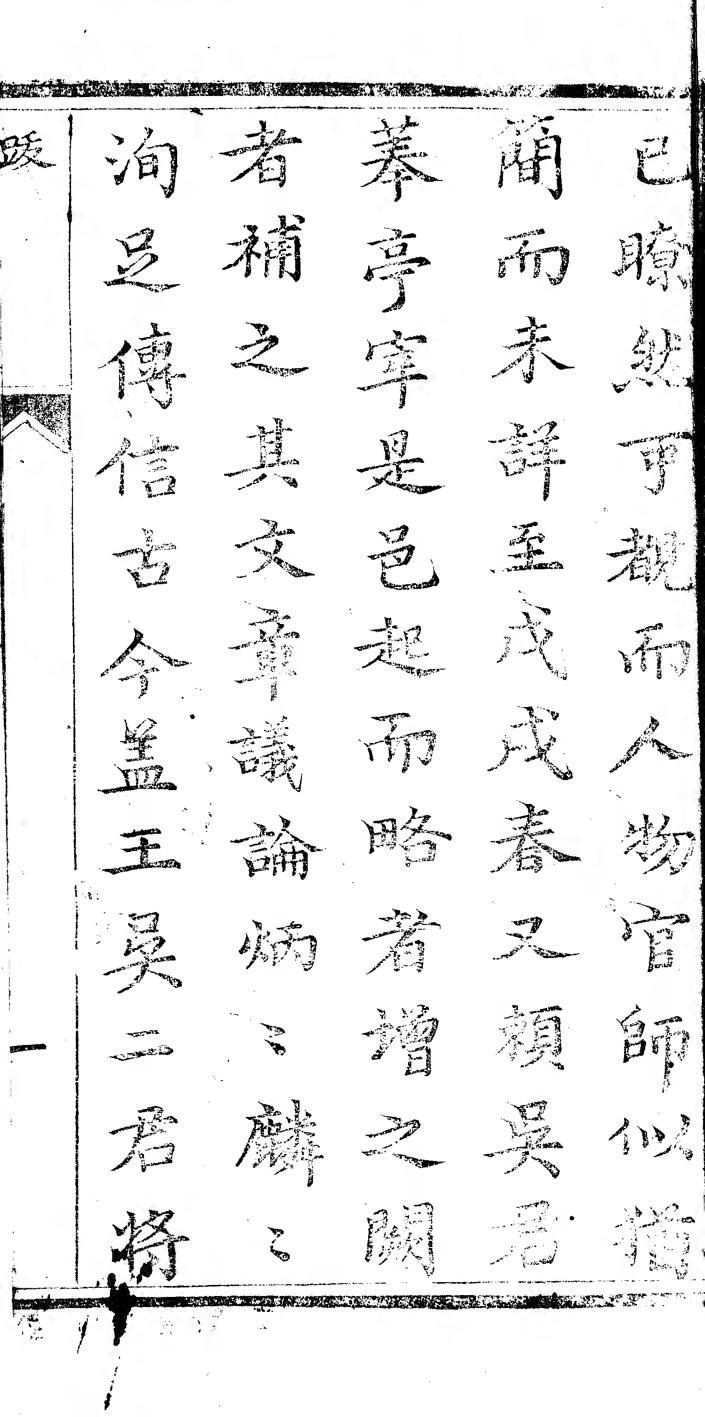 已瞭然可覩而人物官師似猶
簡而未詳至戊戌春又頼吳君
菶亭宰是邑起而略者增之闕
者補之其文章議論炳〻麟〻
洵足傳信古今盖王吳二君将
跋
一